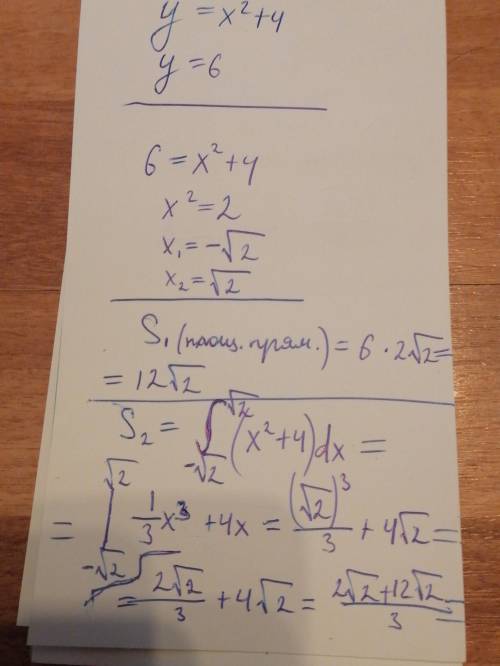 y = x²+4
y = 6
6 = x²+4
x² = 2
x₁ = -√2
x₂ = √2
S₁ (площ. прям.) = 6 · 2√2 =
= 12√2
S₂ = ∫_{-√2}^{√2} (x²+4)dx =
= |_{-√2}^{√2} 1/3 x³ + 4x = (√2)³/3 + 4√2 =
= 2√2/3 + 4√2 = (2√2+12√2)/3 =